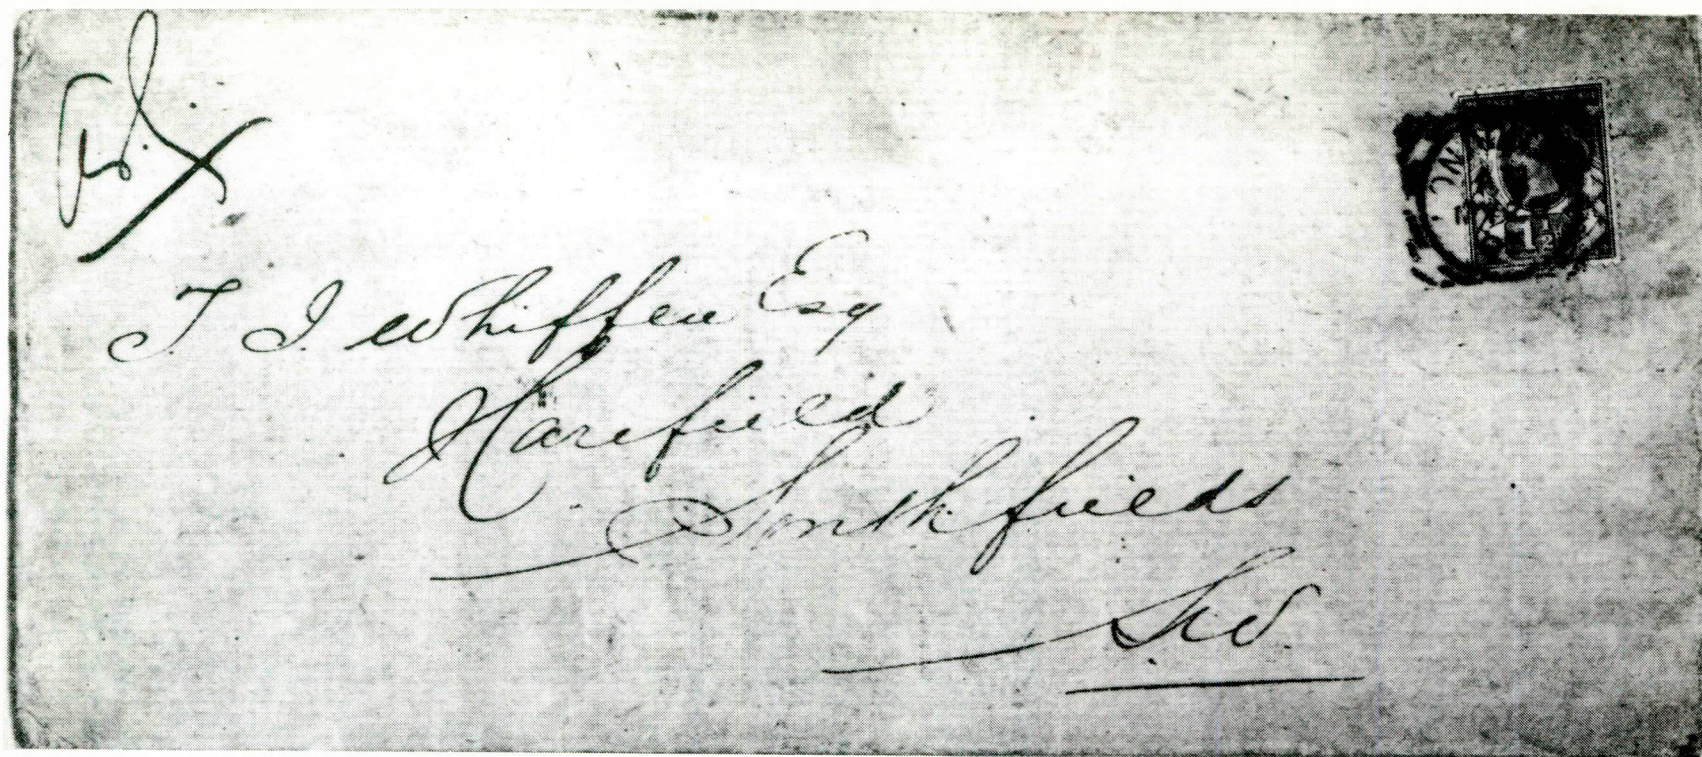 T. J. Whiffen Esq
Harefield
Southfields
S.W.
1½